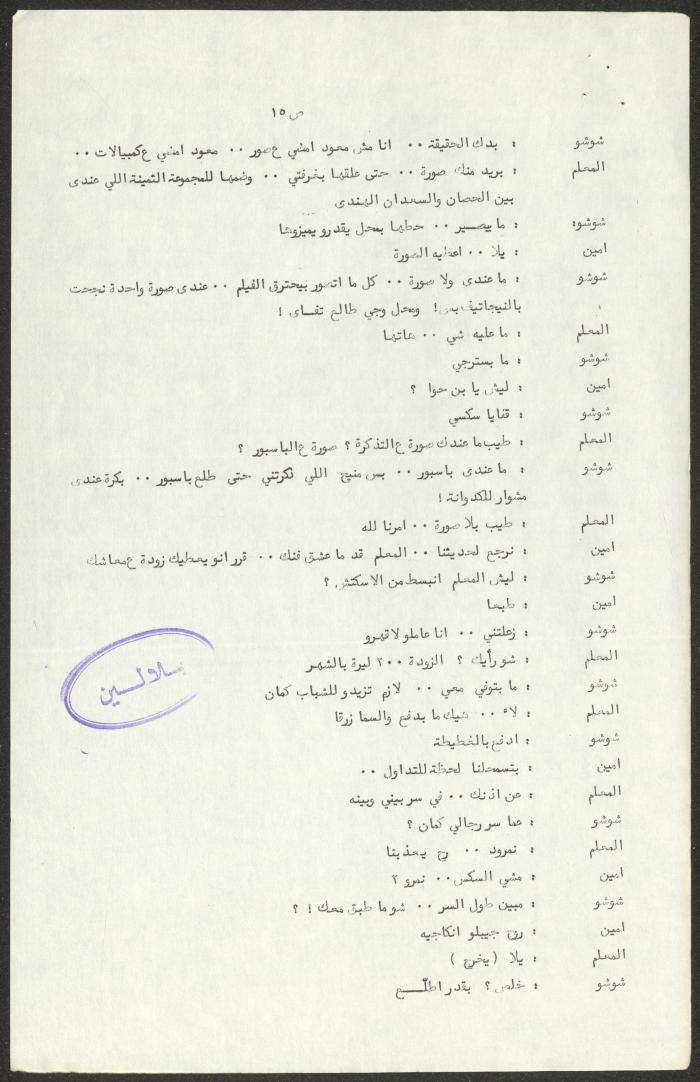 ص ١٥
شوشو : بدك الحقيقة .. انا مش معود امضي ع صور .. معود امضي ع كمبيالات ..
المعلم : بريد منك صورة .. حتى علقها بغرفتي .. وضمها للمجموعة الثمينة اللي عندى
بين الحصان والسعدان الهندى
شوشو: : ما بيصير .. حطها بمحل يقدرو يميزوها
امين : يلا .. اعطيه الصورة
شوشو : ما عندى ولا صورة .. كل ما اتصور بيحترق الفيلم .. عندى صورة واحدة نجحت
بالنيجاتيف بس ! ومحل وجي طالع قفاى !
المعلم : ما عليه شي .. هاتها
شوشو : ما بسترجي
امين : ليش يا بن حوا ؟
شوشو : قفايا سكسي
المعلم : طيب ما عندك صورة ع التذكرة ؟ صورة ع الباسبور ؟
شوشو : ما عندى باسبور .. بس منيح اللي ذكرتني حتى طلع باسبور .. بكرة عندى
مشوار للكدوانة !
المعلم : طيب بلا صورة .. امرنا لله
امين : نرجع لحديثنا .. المعلم قد ما عشق فنك .. قرر انو يعطيك زودة ع معاشك
شوشو : ليش المعلم انبسط من الاسكتش ؟
امين : طبعا
شوشو : زعلتني .. انا عاملو لاقهرو
المعلم : شو رأيك ؟ الزودة ٢٠٠ ليرة بالشهر
شوشو : ما بتوفي معي .. لازم تزيدو للشباب كمان
المعلم : لاء .. هيك ما بدفع والسما زرقا
شوشو : ادفع بالغطيطة
امين : بتسمحلنا لحظة للتداول ..
المعلم : عن اذنك .. في سر بيني وبينه
شوشو : عما سر رجالي كمان ؟
المعلم : نمرود .. رح يعذبنا
امين : مشي السكس .. نمرو ٢
شوشو : مبين طول السر .. شو ما طبق معك ! ؟
امين : روح جيبلو انكاجيه
المعلم : يلا ( يخرج )
شوشو : خلص ؟ بقدر اطلّـــع